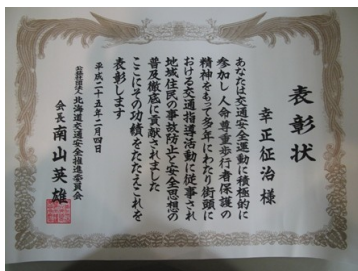 表彰状
幸正征治 様
あなたは交通安全運動に積極的に
参加し人命尊重歩行者保護の
精神をもって多年にわたり街頭に
おける交通指導活動に従事され
地域住民の事故防止と安全思想の
普及徹底に貢献されました
ここにその功績をたたえこれを
表彰します
平成二十五年二月四日
公益社団法人 北海道交通安全推進委員会
会長 南山英雄